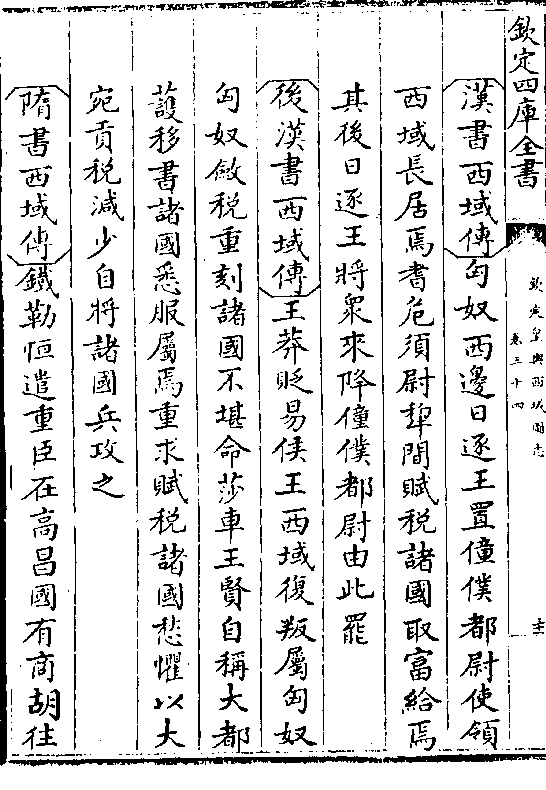 欽定四庫全書
欽定皇輿西域圖志
卷三十四
十二
漢書西域傳匈奴西邊日逐王置僮僕都尉使領
西域長居焉耆危須尉犂間賦稅諸國取富給焉
其後日逐王將衆來降僮僕都尉由此罷
後漢書西域傳王莽貶易侯王西域復叛屬匈奴
匈奴斂稅重刻諸國不堪命莎車王賢自稱大都
䕶移書諸國悉服屬焉重求賦稅諸國愁懼以大
宛貢稅減少自將諸國兵攻之
隋書西域傳鐵勒恒遣重臣在高昌國有商胡往